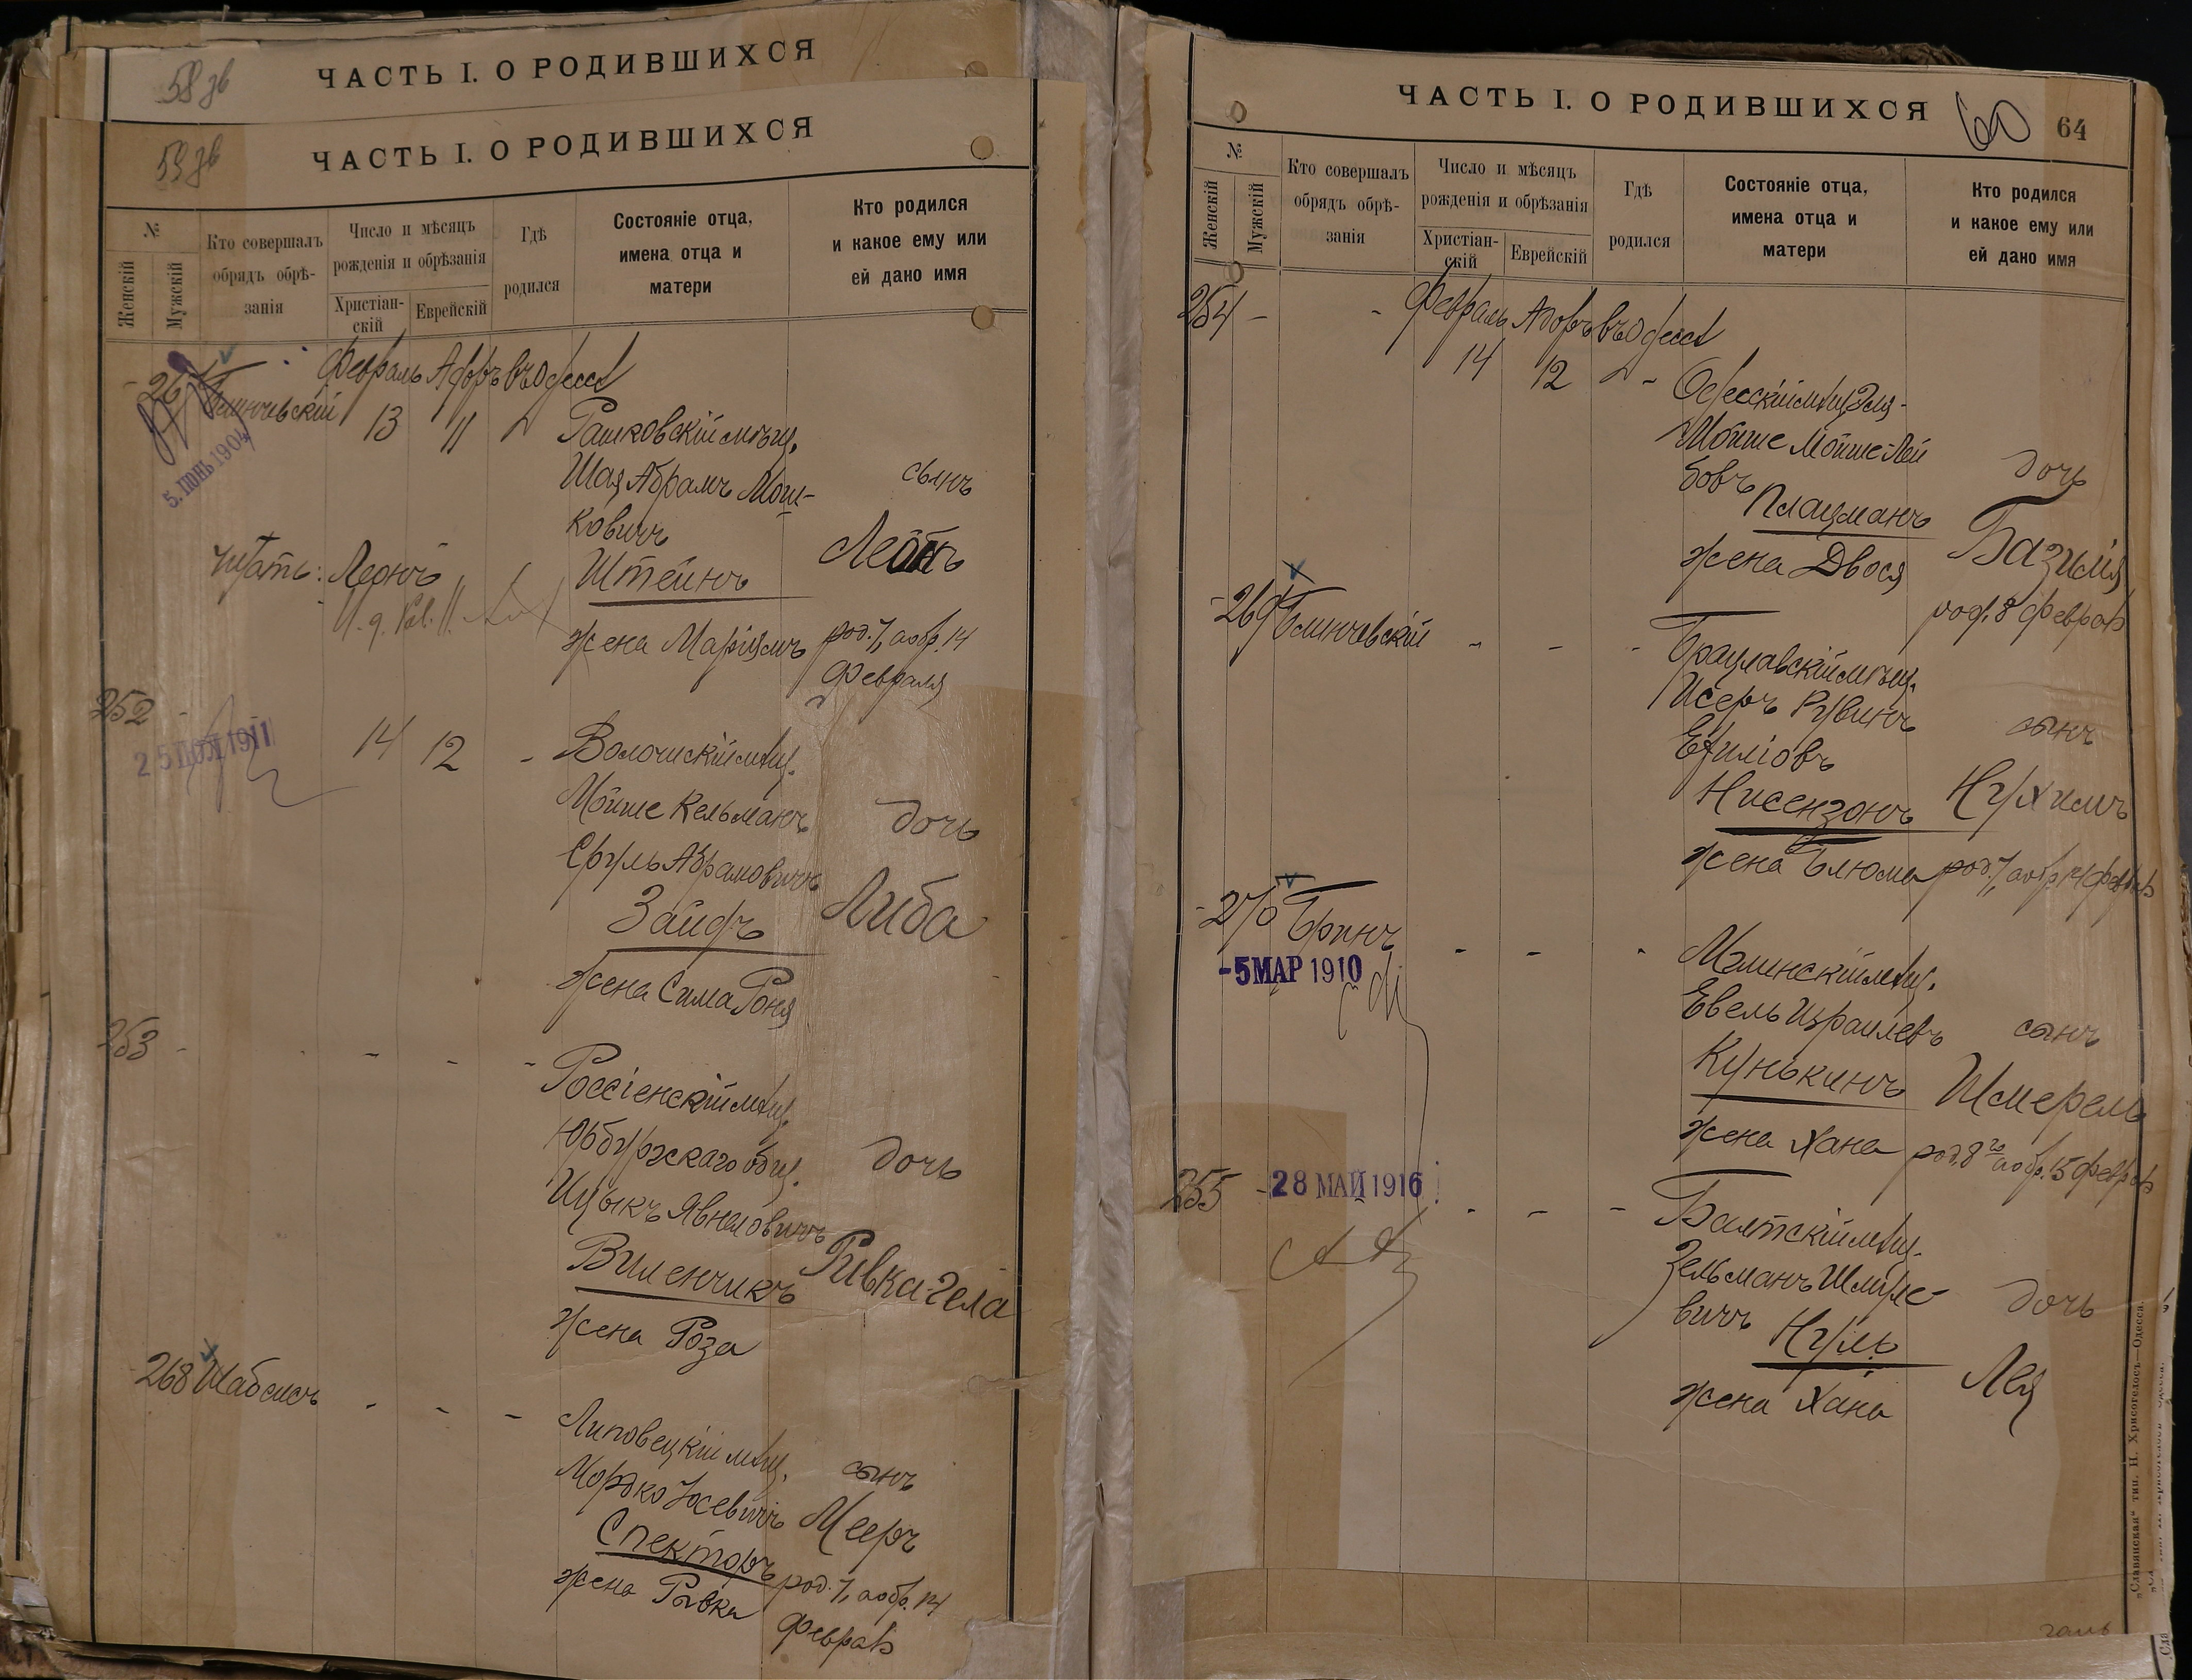 58 зв
ЧАСТЬ I. О РОДИВШИХСЯ
59 зв
ЧАСТЬ I. О РОДИВШИХСЯ
№
Женскій
Мужскій
Кто совершалъ
обрядъ обрѣ-
занія
Число и мѣсяцъ
рожденія и обрѣзанія
Христіан-
скій
Еврейскій
Гдѣ
родился
Состояніе отца,
имена отца и
матери
Кто родился
и какое ему или
ей дано имя
Февраль Адаръ въ Одессѣ
Блинчевскій
13 11
5. ІЮНЬ 1904
Рашковскій мѣщ.
Шая Абрамъ Мош-
ковичъ
Штейнъ
жена Маріямъ
сынъ
Леонъ
род. 7, а обр. 14
Февраля
Читать: Леонъ
252 -
25 1911
14 12 -
Волочискій мѣщ.
Мойше Кельманъ
Сруль Абрамовичъ
Зайфъ
жена Сима Роня
дочь
Либа
253 - - - - -
Россіенскій мѣщ.
Юрбургскаго общ.
Ицыкъ Явнеловичъ
Виленчикъ
жена Роза
дочь
Ривка-Гела
268 Шабсисъ - - -
Липовецкій мѣщ.
Мордко Іосевичъ
Спекторъ
жена Рывка
сынъ
Мееръ
род. 7, а обр. 14
февраля
ЧАСТЬ I. О РОДИВШИХСЯ
60
64
№
Женскій
Мужскій
Кто совершалъ
обрядъ обрѣ-
занія
Число и мѣсяцъ
рожденія и обрѣзанія
Христіан-
скій
Еврейскій
Гдѣ
родился
Состояніе отца,
имена отца и
матери
Кто родился
и какое ему или
ей дано имя
254 - - Февраль Адаръ въ Одессѣ
14 12 -
Одесскій мѣщ. Эля-
Мойше Мойше-Лей
бовъ
Плацманъ
жена Двося
дочь
Базилія
род. 8 февраля
269 Блинчевскій - - -
Брацлавскій мѣщ.
Исеръ Рувинъ
Нисензонъ
жена Блюма
сынъ
Нухимъ
род. 7, а обр. 14 февраля
270 Бринъ - - -
-5 МАР 1910
Мглинскій мѣщ.
Евель Израилевъ
Кунькинъ
жена Хана
сынъ
Шмерель
род. 8го а обр. 15 февраля
255 - - - -
28 МАЙ 1916
Балтскій мѣщ.
Зельманъ Шмуле-
вичъ
Нуль
жена Хана
дочь
Лея
„Славянская“ тип. Н. Хрисогелосъ—Одесса.